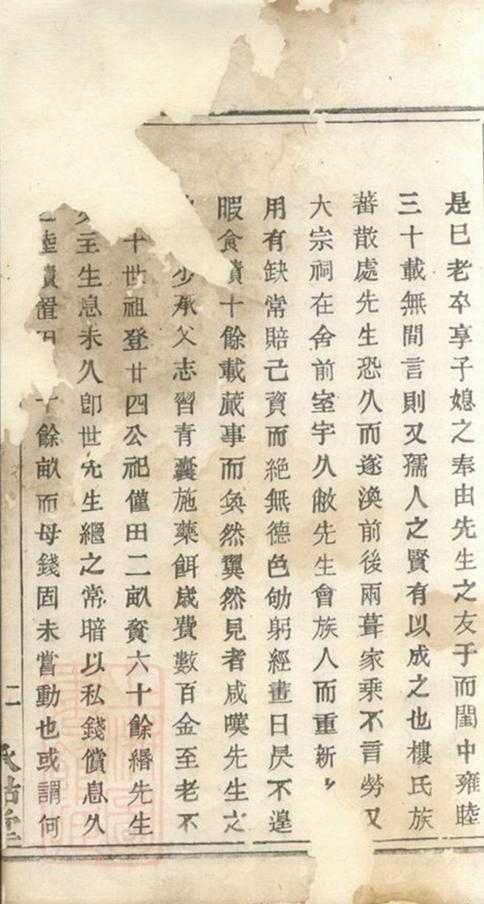 是已老卒享子媳之奉由先生之友于而閨中雍睦
三十載無間言則又孺人之賢有以成之也樓氏族
蕃散處先生恐久而遂渙前後兩葺家乘不言勞又
大宗祠在舍前室宇久敝先生會族人而重新
用有缺常賠己資而絶無德色劬躬經畫日昃不遑
暇食積十餘載蕆事而奐然翼然見者咸嘆先生之
少承父志習青囊施藥餌歲費數百金至老不
十世祖登廿四公祀僅田二畝貲六十餘緡先生
主生息未久卽世先生繼之常暗以私錢償息久
陸續置田十餘畝而母錢固未嘗動也或謂何
二